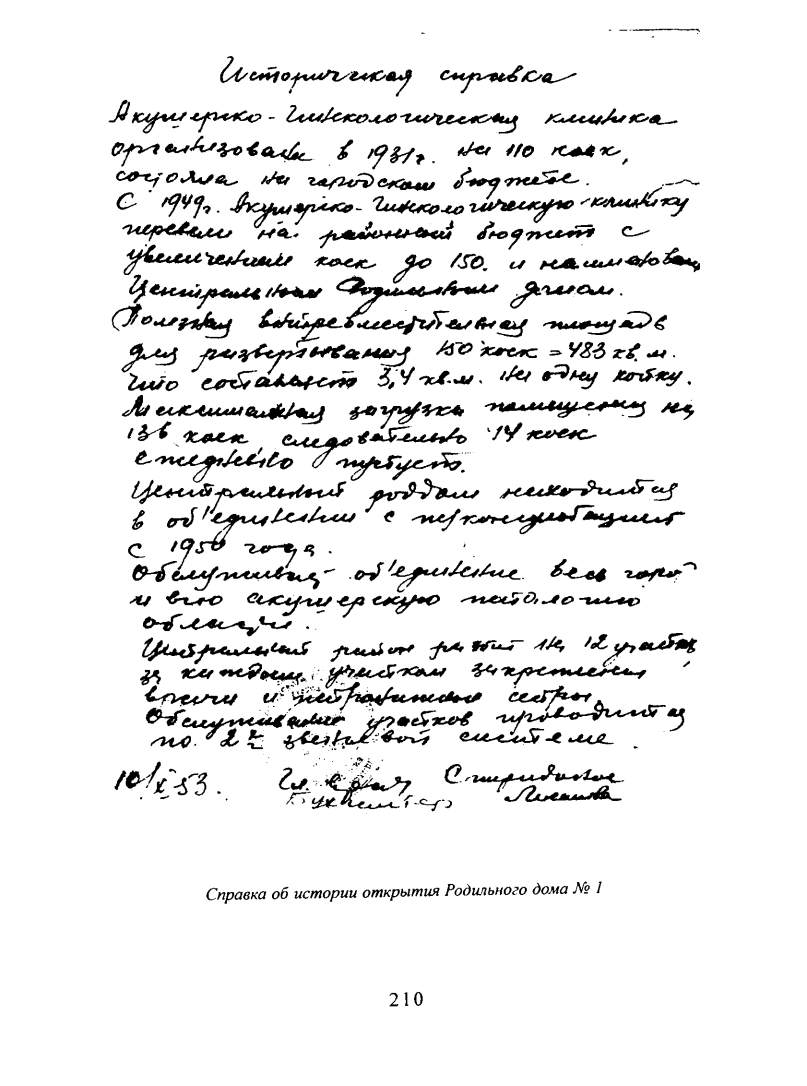 Историческая справка
Акушерко-Гинекологическая клиника
организована в 1931г. на 110 коек,
состояла на городском бюджете.
С 1949г. Акушерко-Гинекологическую клинику
перевели на районный бюджет с
увеличением коек до 150. и наименован
Центральным Родильным домом.
Полезная внутревместительная площадь
для развертывания 150 коек = 483 кв.м.
что составляет 3,4 кв.м. на одну койку.
Максимальная загрузка помещения на
136 коек, следовательно 14 коек
ежедневно пустуют.
Центральный роддом находится
в об'единении с ж/консультацией
с 1950 года.
Обслуживает об'единение весь город
и всю акушерскую патологию
области.
Центральный район разбит на 12 участков
за каждым участком закреплены
врачи и патронажные сестры
Обслуживание участков проводится
по 2х звеньевой системе
10/X 53. Гл. врач Спиридонова
Бухгалтер
Справка об истории открытия Родильного дома № 1
210